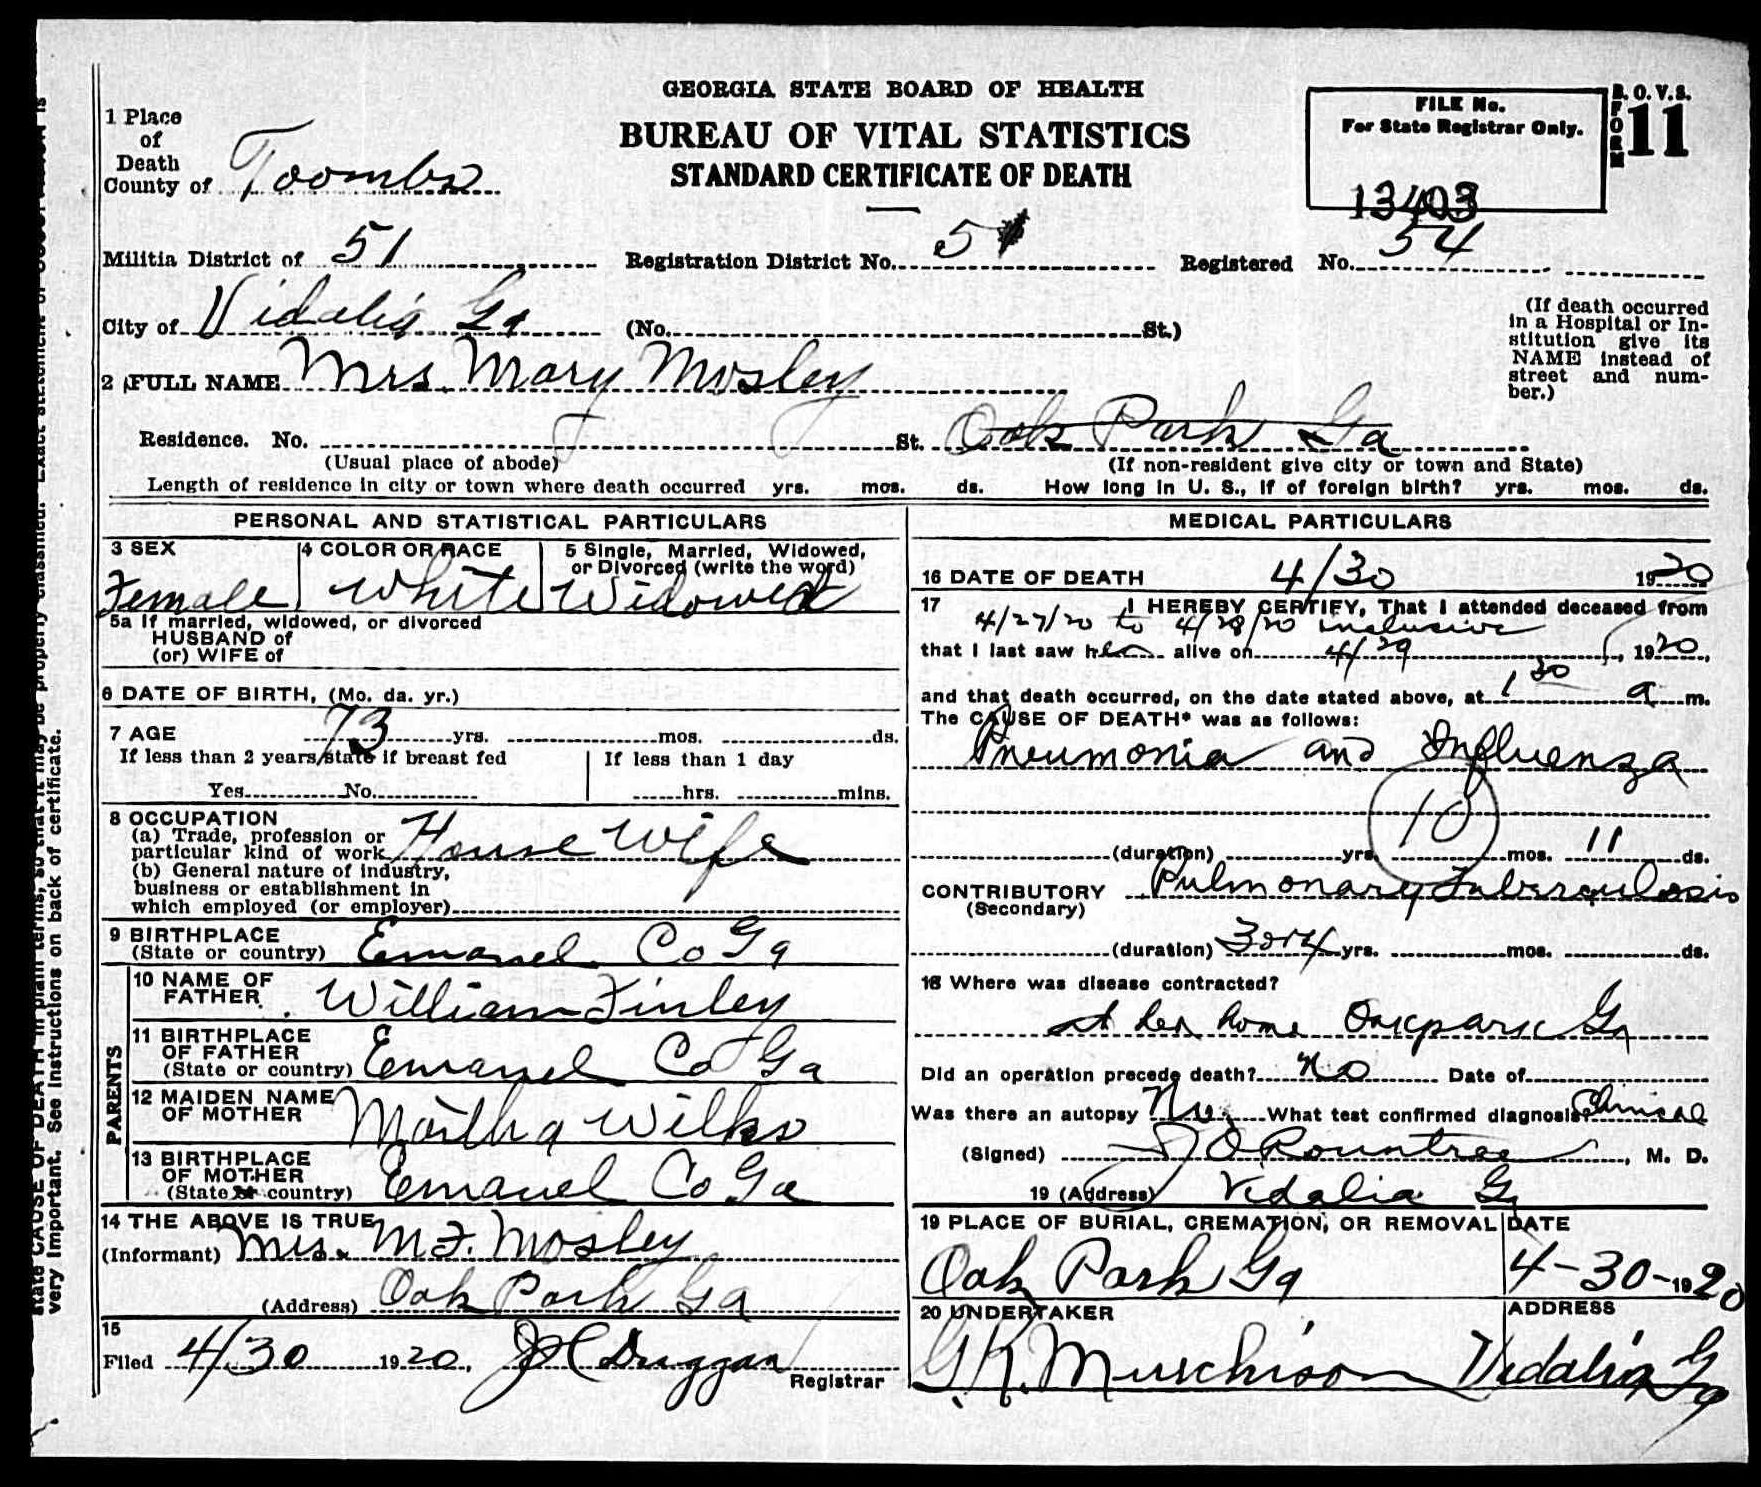 GEORGIA STATE BOARD OF HEALTH
BUREAU OF VITAL STATISTICS
STANDARD CERTIFICATE OF DEATH
FILE No.
For State Registrar Only.
13403
B. O. V. S.
FORM 11
1 Place of Death
County of Toombs
Militia District of 51 Registration District No. 51 Registered No. 54
City of Vidalia Ga (No. St.)
(If death occurred in a Hospital or Institution give its NAME instead of street and number.)
2 FULL NAME Mrs. Mary Mosley
Residence. No. St. Oak Park Ga
(Usual place of abode) (If non-resident give city or town and State)
Length of residence in city or town where death occurred yrs. mos. ds. How long in U. S., if of foreign birth? yrs. mos. ds.
PERSONAL AND STATISTICAL PARTICULARS
3 SEX Female
4 COLOR OR RACE White
5 Single, Married, Widowed, or Divorced (write the word) Widowed
5a If married, widowed, or divorced
HUSBAND of
(or) WIFE of
6 DATE OF BIRTH, (Mo. da. yr.)
7 AGE 73 yrs. mos. ds.
If less than 2 years state if breast fed
Yes No.
If less than 1 day
hrs. mins.
8 OCCUPATION
(a) Trade, profession or particular kind of work House Wife
(b) General nature of industry, business or establishment in which employed (or employer)
9 BIRTHPLACE
(State or country) Emanuel Co Ga
PARENTS
10 NAME OF FATHER William Finley
11 BIRTHPLACE OF FATHER
(State or country) Emanuel Co Ga
12 MAIDEN NAME OF MOTHER Martha Wilks
13 BIRTHPLACE OF MOTHER
(State or country) Emanuel Co Ga
14 THE ABOVE IS TRUE
(Informant) Mrs. M F. Mosley
(Address) Oak Park Ga
15
Filed 4/30 1920, J C Duggan
Registrar
MEDICAL PARTICULARS
16 DATE OF DEATH 4/30 1920
17 I HEREBY CERTIFY, That I attended deceased from
4/27/20 to 4/29/20 inclusive
that I last saw her alive on 4/29, 1920,
and that death occurred, on the date stated above, at 1 30 a m.
The CAUSE OF DEATH* was as follows:
Pneumonia and Influenza
10
(duration) yrs. mos. 11 ds.
CONTRIBUTORY Pulmonary Tuberculosis
(Secondary)
(duration) 3 or 4 yrs. mos. ds.
18 Where was disease contracted?
at her home Oakpark Ga
Did an operation precede death? no Date of
Was there an autopsy No. What test confirmed diagnosis Clinical
(Signed) Rountree, M. D.
19 (Address) Vidalia Ga
19 PLACE OF BURIAL, CREMATION, OR REMOVAL DATE
Oak Park Ga 4-30-1920
20 UNDERTAKER ADDRESS
G K. Murchison Vidalia Ga
very important. See instructions on back of certificate.